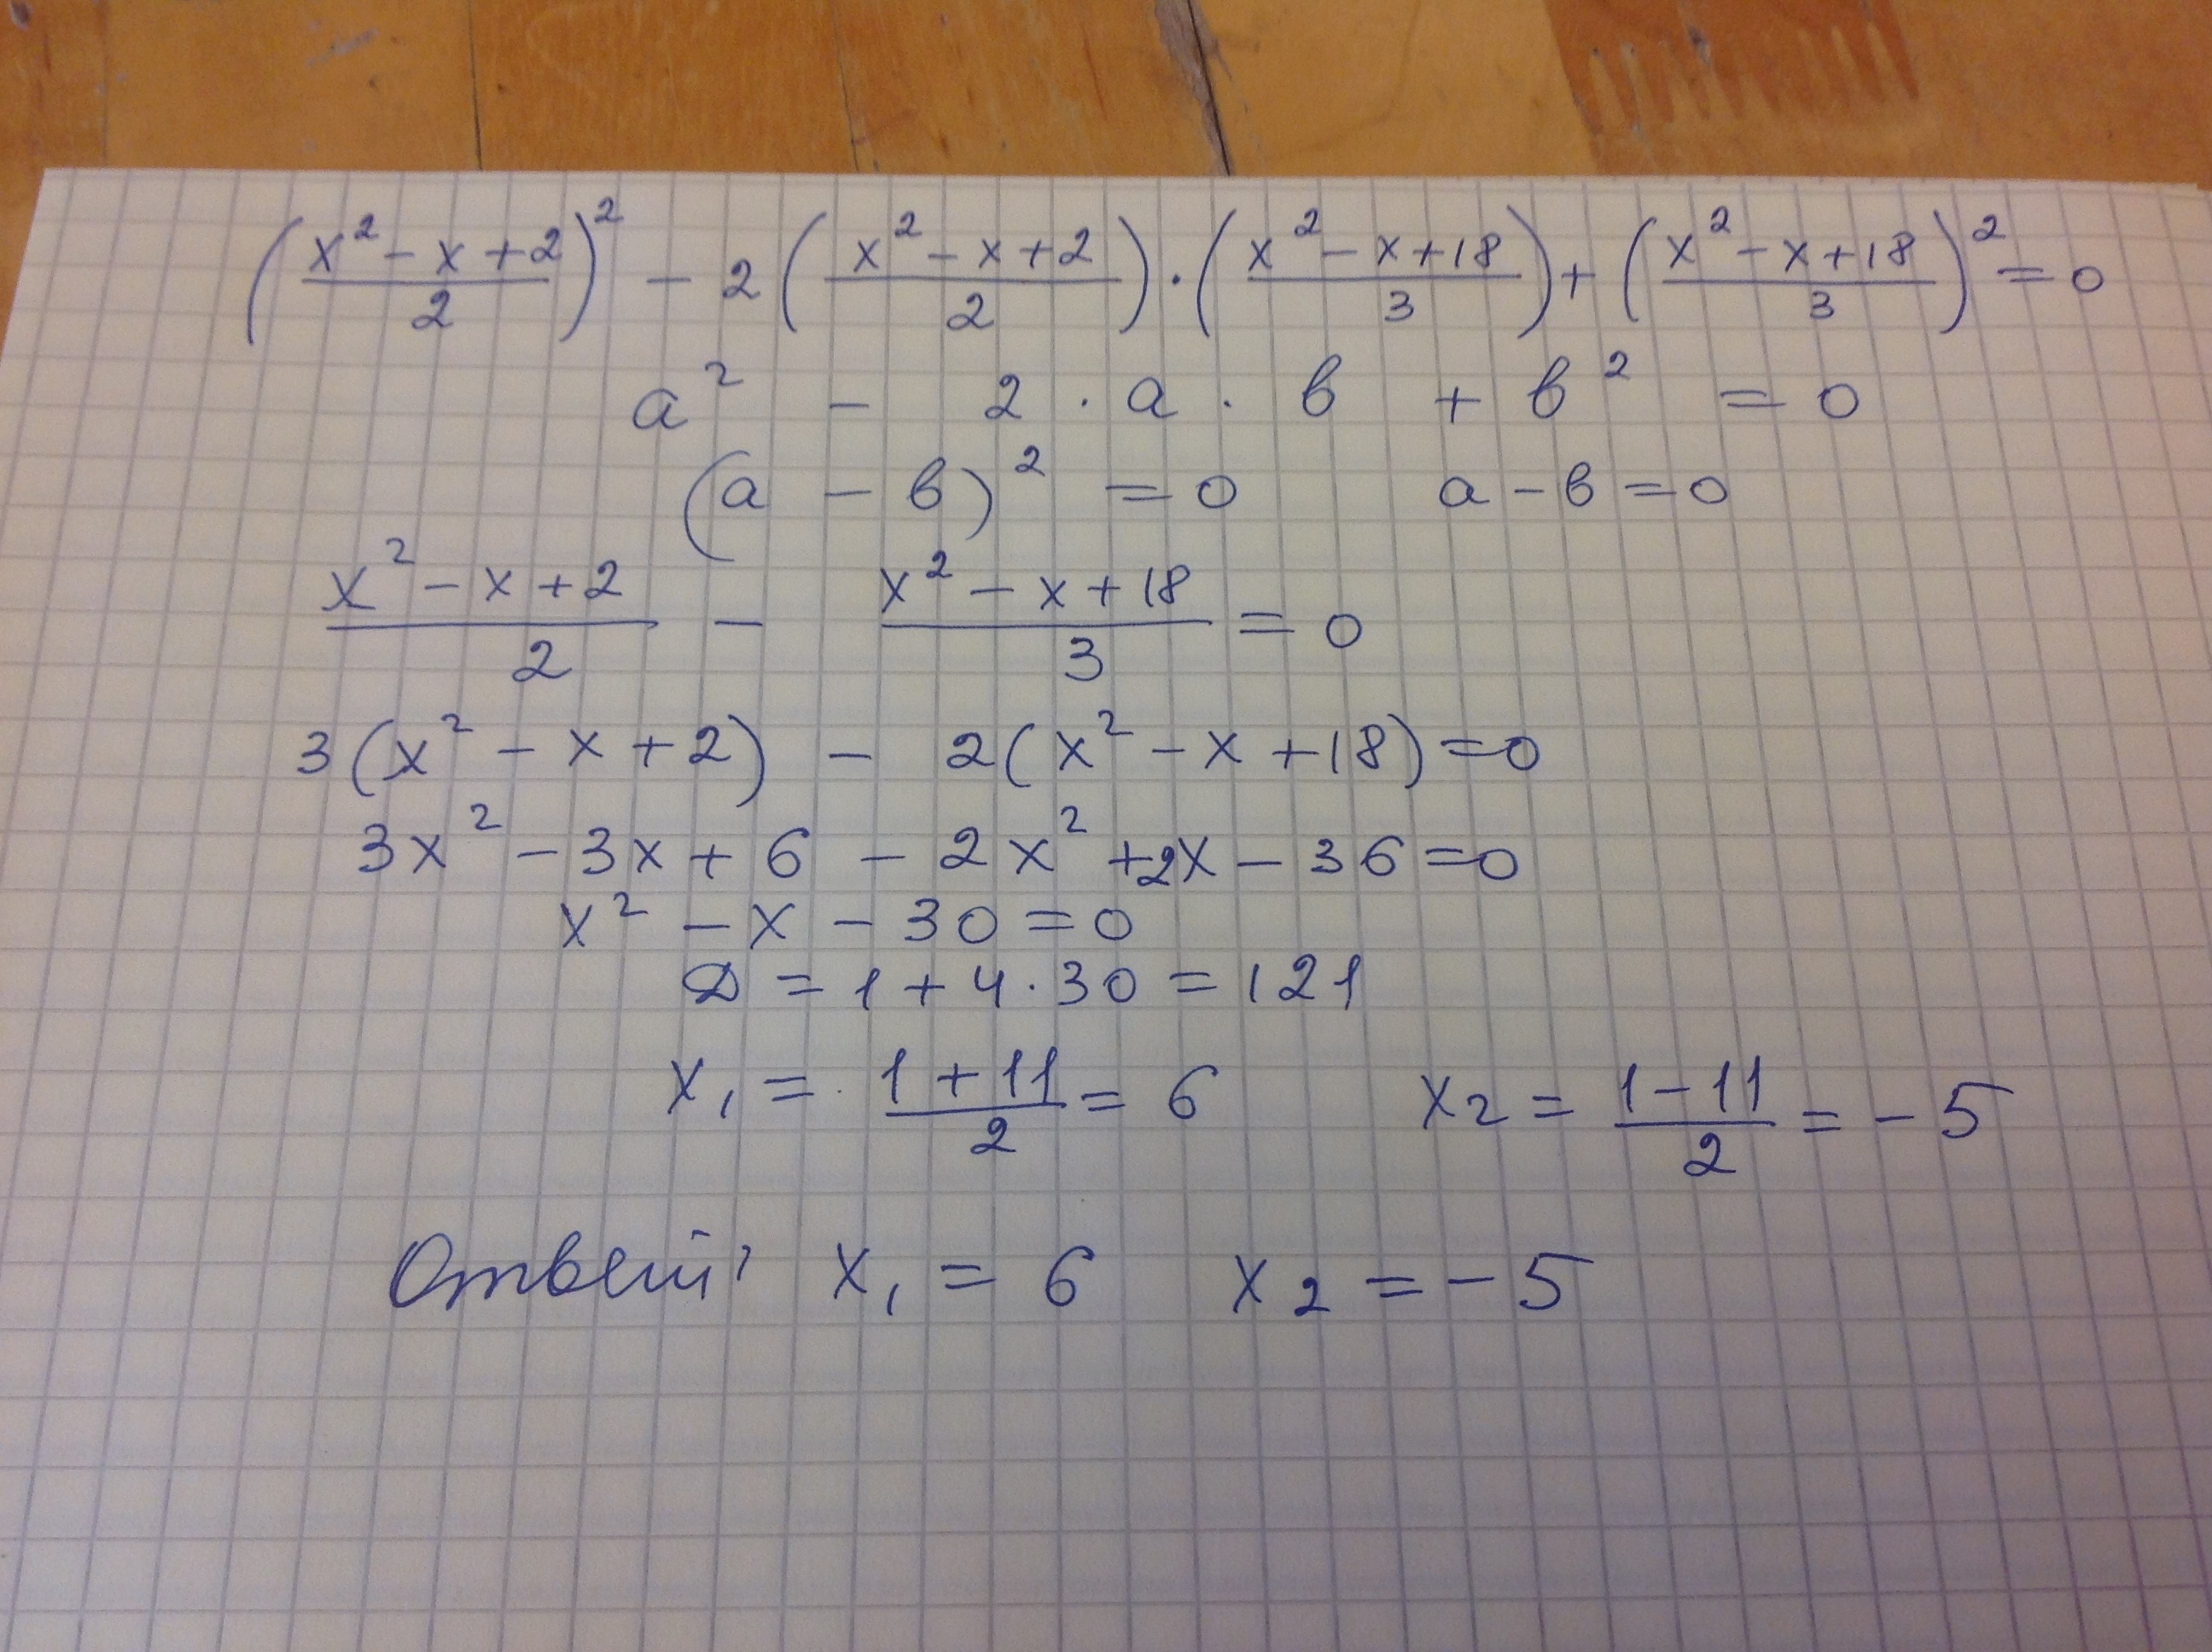 ((x² - x + 2)/2)² - 2((x² - x + 2)/2)·((x² - x + 18)/3) + ((x² - x + 18)/3)² = 0
a² - 2 · a · в + в² = 0
(a - в)² = 0 a - в = 0
(x² - x + 2)/2 - (x² - x + 18)/3 = 0
3(x² - x + 2) - 2(x² - x + 18) = 0
3x² - 3x + 6 - 2x² + 2x - 36 = 0
x² - x - 30 = 0
D = 1 + 4·30 = 121
x₁ = (1 + 11)/2 = 6 x₂ = (1 - 11)/2 = -5
Ответ: x₁ = 6 x₂ = -5